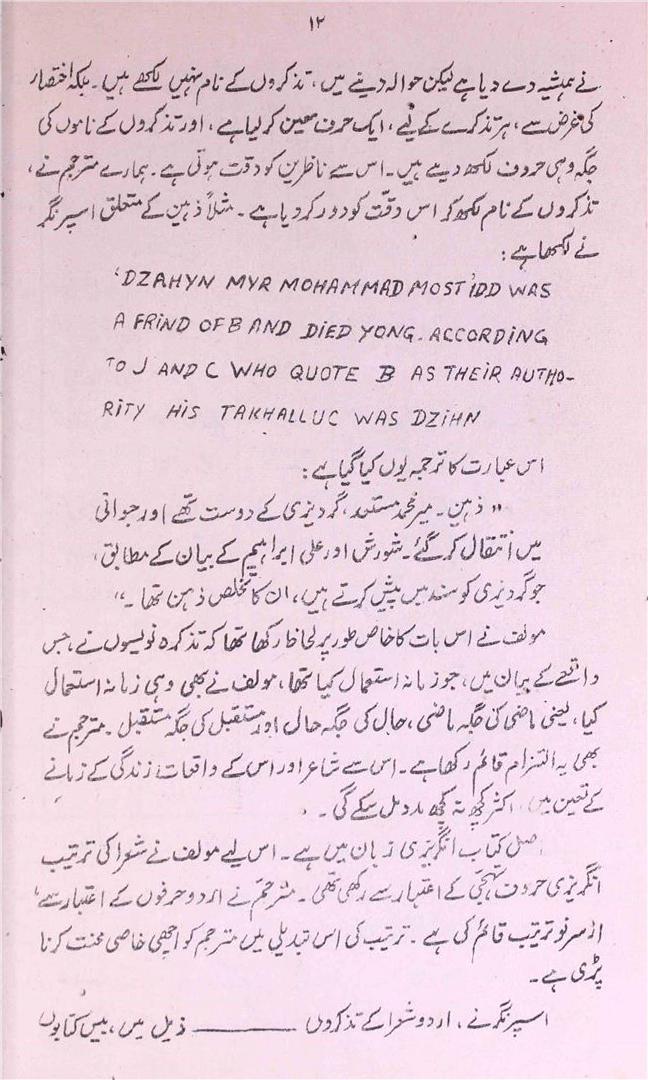 ۱۲
نے ہمیشہ دے دیا ہے لیکن حوالہ دینے میں، تذکروں کے نام نہیں لکھے ہیں۔ بلکہ اختصار
کی غرض سے، ہر تذکرے کے لیے، ایک حرف معین کر لیا ہے، اور تذکروں کے ناموں کی
جگہ وہی حروف لکھ دیے ہیں۔ اس سے ناظرین کو دقت ہوتی ہے۔ ہمارے مترجم نے،
تذکروں کے نام لکھ کر اس دقّت کو دور کر دیا ہے۔ مثلاً ذہین کے متعلق اسپرنگر
نے لکھا ہے:
‘DZAHYN MYR MOHAMMAD MOST'IDD WAS
A FRIND OF B AND DIED YONG. ACCORDING
TO J AND C WHO QUOTE B AS THEIR AUTHO-
RITY HIS TAKHALLUC WAS DZIHN
اس عبارت کا ترجمہ یوں کیا گیا ہے:
"ذہین۔ میر محمد مستعد، گردیزی کے دوست تھے اور جوانی
میں انتقال کر گئے۔ شورش اور علی ابراہیم کے بیان کے مطابق،
جو گردیزی کو سند میں پیش کرتے ہیں، ان کا تخلص ذہن تھا۔"
مولف نے اس بات کا خاص طور پر لحاظ رکھا تھا کہ تذکرہ نویسوں نے، جس
واقعے کے بیان میں، جو زمانہ استعمال کیا تھا، مولف نے بھی وہی زمانہ استعمال
کیا، یعنی ماضی کی جگہ ماضی، حال کی جگہ حال اور مستقبل کی جگہ مستقبل۔ مترجم نے
بھی یہ التزام قائم رکھا ہے۔ اس سے شاعر اور اس کے واقعات زندگی کے زمانے
کے تعین میں، اکثر کچھ نہ کچھ مدد مل سکے گی۔
اصل کتاب انگریزی زبان میں ہے۔ اس لیے مولف نے شعرا کی ترتیب
انگریزی حروف تہجی کے اعتبار سے رکھی تھی۔ مترجم نے اردو حرفوں کے اعتبار سے،
از سر نو ترتیب قائم کی ہے۔ ترتیب کی اس تبدیلی میں مترجم کو اچھی خاصی محنت کرنا
پڑی ہے۔
اسپرنگر نے، اردو شعرا کے تذکروں ــــــــــ ذیل میں، بیس کتابوں